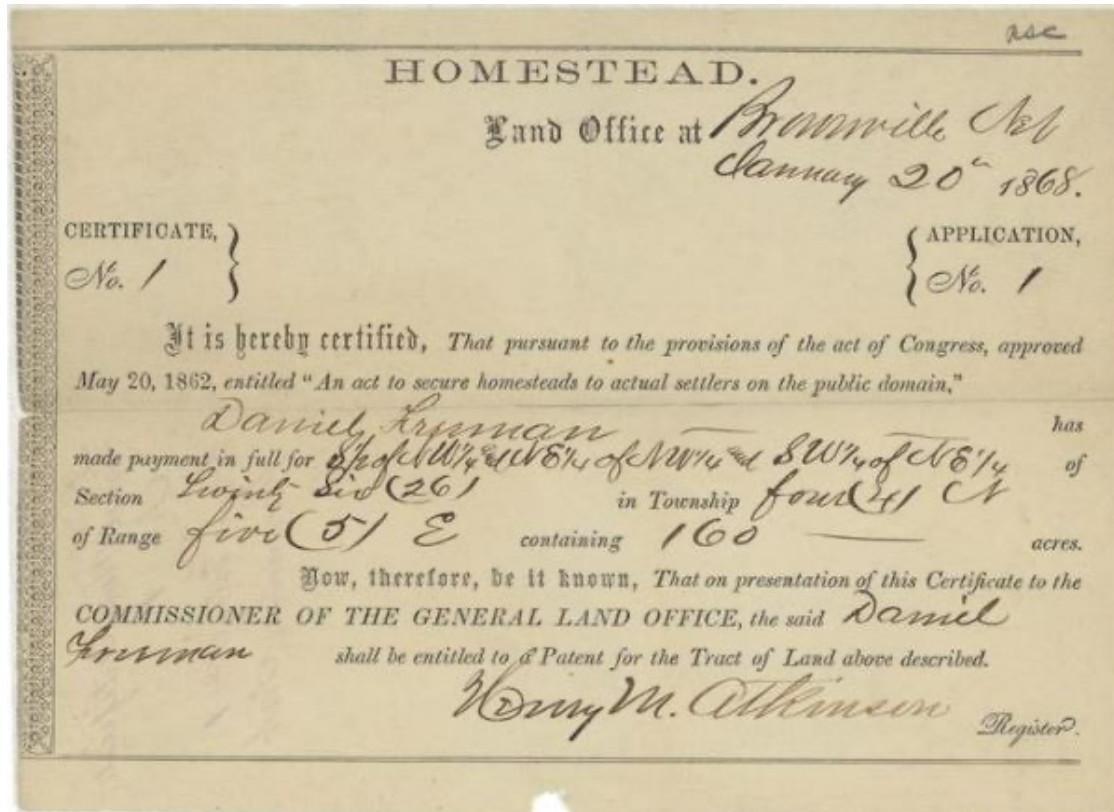 asc
HOMESTEAD.
Land Office at Brownville Neb
January 20th 1868.
CERTIFICATE, No. 1 } { APPLICATION, No. 1
It is hereby certified, That pursuant to the provisions of the act of Congress, approved
May 20, 1862, entitled “An act to secure homesteads to actual settlers on the public domain,”
Daniel Freeman has
made payment in full for S½ of NW¼ and NE¼ of NW¼ and SW¼ of NE¼ of
Section Twenty Six (26) in Township four (4) N
of Range five (5) E containing 160 acres.
Now, therefore, be it known, That on presentation of this Certificate to the
COMMISSIONER OF THE GENERAL LAND OFFICE, the said Daniel
Freeman shall be entitled to a Patent for the Tract of Land above described.
Henry M. Atkinson
Register.